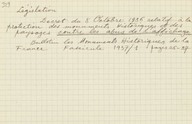 Législation
Décret du 5 Octobre 1936 relatif à la
protection des monuments historiques et des
paysages contre les abus de l'affichage
Bulletin des Monuments Historiques de la
France. Fascicule 1937/1: pages 56-57